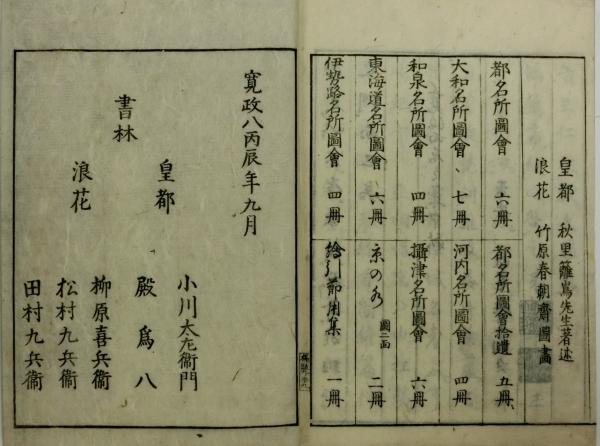 皇都　秋里籬嶌先生著述
浪花　竹原春朝齋圖畫
都名所圖會　六冊
都名所圖會拾遺　五冊
大和名所圖會　七冊
河内名所圖會　四冊
和泉名所圖會　四冊
攝津名所圖會　六冊
東海道名所圖會　六冊
京の水　圖二面　二冊
伊勢路名所圖會　四冊
繪引節用集　一冊
寛政八丙辰年九月
書林
皇都
小川太左衞門
殿爲八
浪花
柳原喜兵衞
松村九兵衞
田村九兵衞